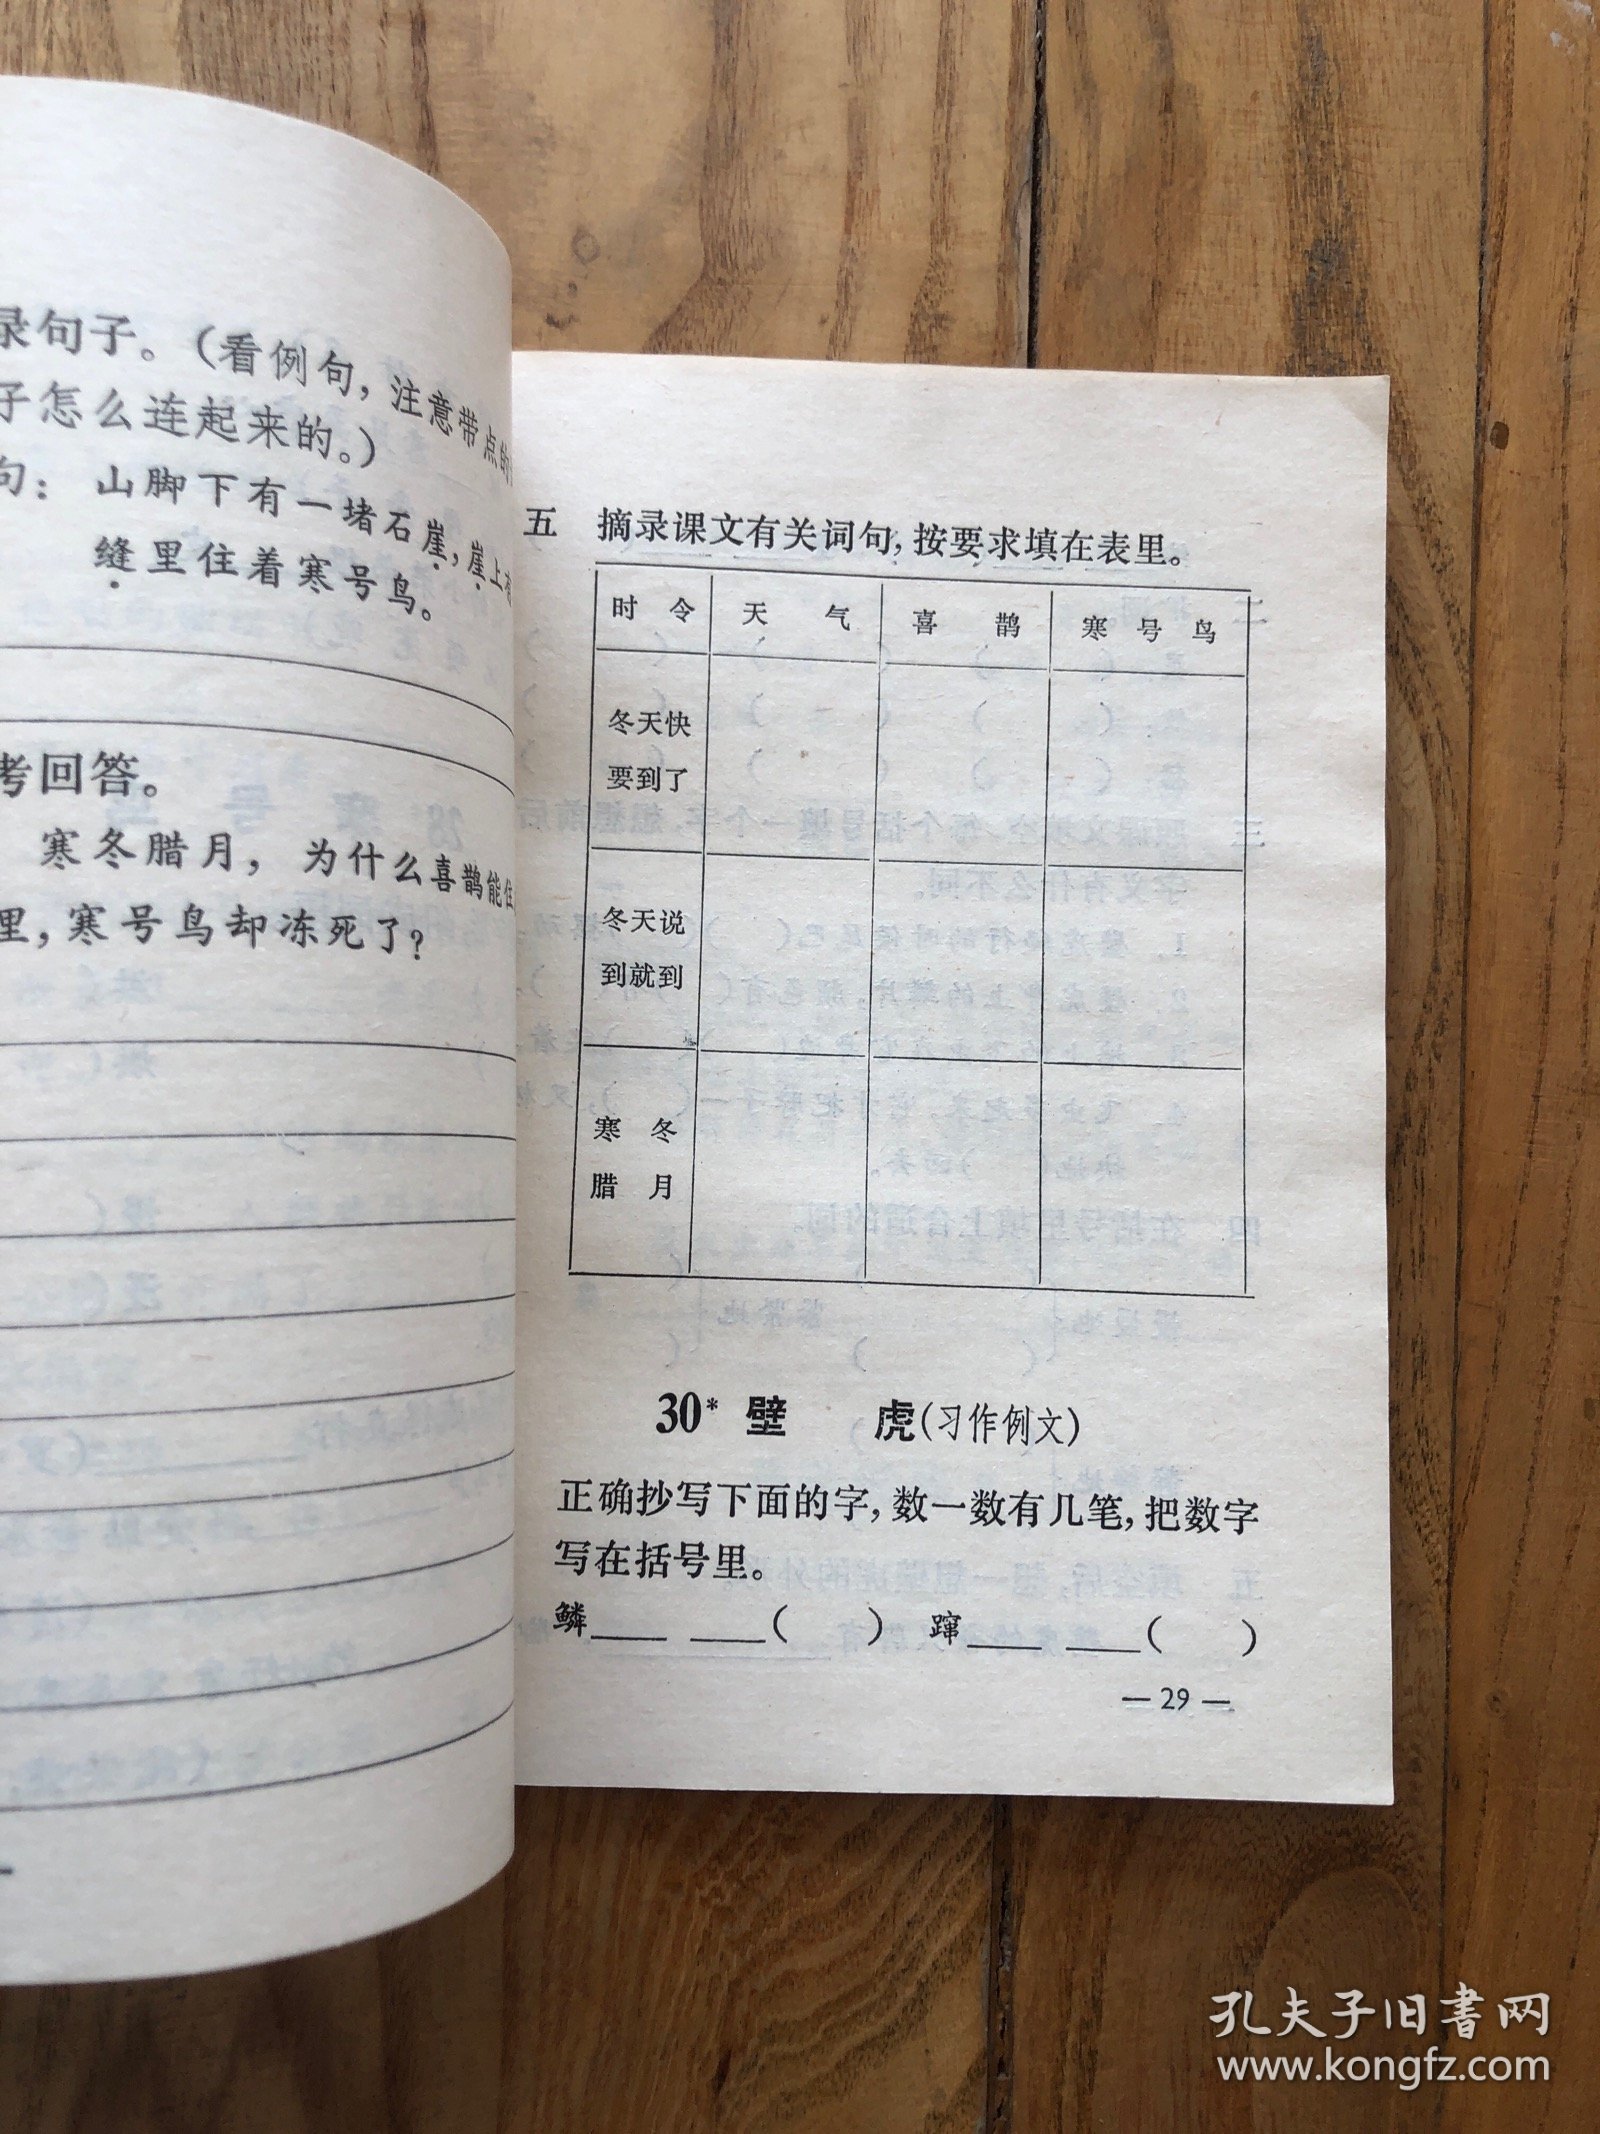 录句子。(看例句,注意带点的
子怎么连起来的。)
句: 山脚下有一堵石崖,崖上
缝里住着寒号鸟。
考回答。
寒冬腊月,为什么喜鹊能住
里,寒号鸟却冻死了?
五 摘录课文有关词句,按要求填在表里。
时 令 天 气 喜 鹊 寒 号 鸟
冬天快
要到了
冬天说
到就到
寒 冬
腊 月
30* 壁 虎(习作例文)
正确抄写下面的字,数一数有几笔,把数字
写在括号里。
鳞____ ____( ) 蹿____ ____( )
— 29 —
孔夫子旧書网
www.kongfz.com